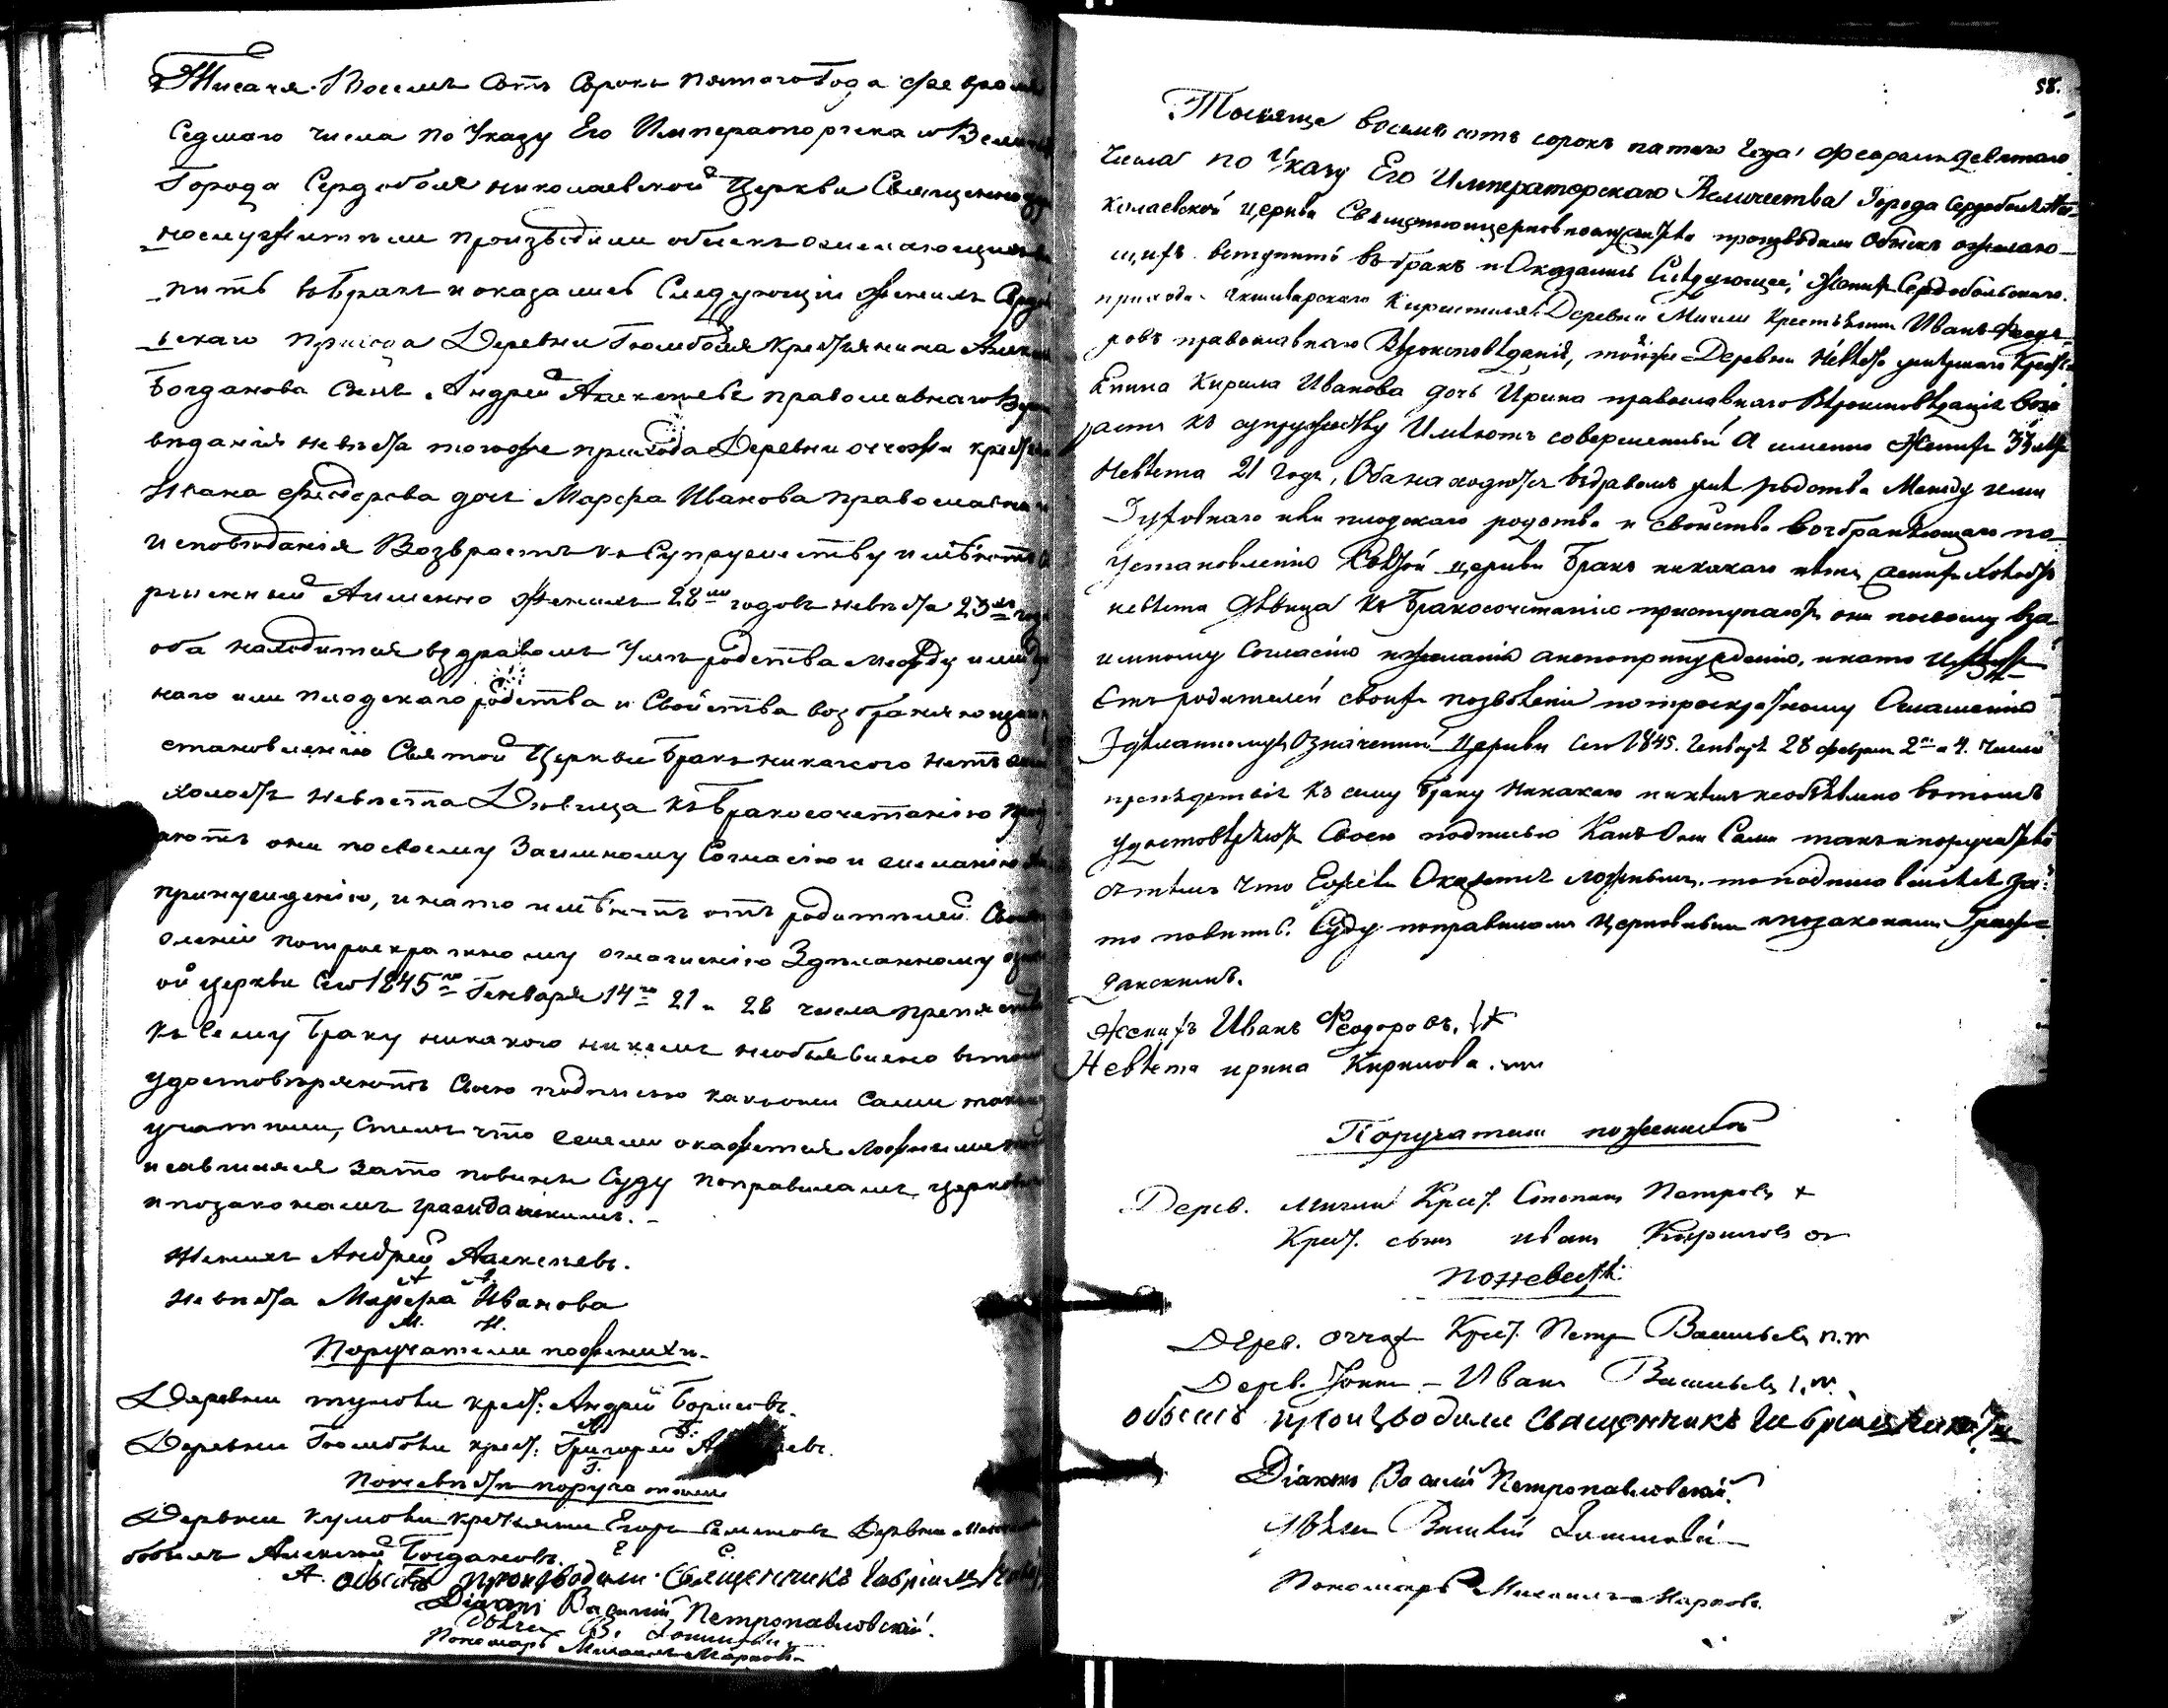 Тысяча Восемь Сотъ Сорокъ Пятаго Года февраля
Седмаго числа по Указу Его Императорскаго Вели
Города Сердоболя Николаевской Церкви Священно
нослужители произъводили обыскъ ожелающихъ
пить въ Бракъ и оказалось Следующіи Женихъ Сердо
ьскаго Прихода Деревни крестьянина Алек
Богданова Сынъ Андрей Алексеевъ православнаго Веро
веданія невеста тогоже прихода Деревни оччожи крестья
Ивана Феодорова дочь Марфа Иванова православна
исповѣданія Возврастъ къ Супружеству имѣютъ
ршенный Аименно Женихъ 28 годовъ невѣста 23 года
оба находится въздравомъ Умѣ родства между ими
наго или плодскаго родства и Свойства возбраняющаго
становленію Святой Церкви Бракъ никакого нетъ
холостъ невѣста Дѣвица къ Бракосочетанію при
аютъ они посвоему Заимному Согласію и желанію
принуждению, инато имѣютъ отъ родителей Своихъ
оленій потроекратному оглашенію Здѣланному озна
ой церкви Сего 1845го Генваря 14го 21 и 28 числа препятств
къ Сему Браку никакого никемъ необъявлено втомъ
удостовѣряютъ Своею подписью какъони Сами такъ
учатели, Стемъ что ежели окажется Ложнымъ
исавшияся зато повинны Суду поправиламъ церковн
и позаконамъ гражданскимъ.
Женихъ Андрей Алексѣевъ.
А. А.
Невѣста Марфа Иванова
М. И.
Поручатели поженихѣ
Деревни крест: Андрей Борисовъ.
А. Б.
Деревни крест: Григорей
Г.
Поневѣстѣ поручатели
Деревни крестьянинъ Егоръ Семеновъ Деревни
Е. С.
бобыль Алексѣй Богдановъ.
А. обыскъ производили Священникъ Гавріилъ
Діаконъ Василій Петропавловскій.
Дьячекъ В.
Пономарь Михаилъ Марковъ

58.
Тысяща восемь сотъ сорокъ пятаго года февраля девятаго
Числа по Указу Его Императорскаго Величества Города Сердоболя Ни-
колаевской церкви Священноцерковнослужители производили Обыскъ ожелаю-
щихъ вступить въ бракъ и Оказалось Слѣдующее; Женихъ Сердобольскаго
прихода Кирьешскаго Деревни Крестьянинъ Иванъ Феодо-
ровъ православнаго Вѣроисповѣданія, тойже Деревни Невѣста Крестья
нина Кирила Иванова дочь Ирина православнаго Вѣроисповѣданія Возъ
растъ къ супружеству Имѣютъ совершенный а именно Женихъ лѣтъ
Невѣста 21 годъ, Оба находятся въздравомъ умѣ родства Между ими
Духовнаго или плодскаго родства и свойства возбраняющаго по-
установленію Святой церкви Бракъ никакаго нѣтъ женихъ Холостъ
невѣста Дѣвица къ Бракосочетанію приступаютъ они посвоему вза-
имному Согласію ижеланію анепопринужденію, инато имѣютъ
Отъ родителей своихъ позволеніе потроекратному Оглашенію
Здѣланному Означенной Церкви Сего 1845. Генваря 28 февраля 2го и 4. числа
препядствія къ сему браку Никакаго никѣмъ необъявлено вотомъ
удостовѣряютъ Своею подписью Какъ Они Сами такъ и поручатели
стѣмъ что Ежели Окажется ложнымъ, то подписавшіеся за
то повинны Суду поправиламъ Церковнымъ и позаконамъ Граж-
данскимъ.
Женихъ Иванъ Феодоровъ.
Невѣста ирина Кирилова.
Поручатели поженихѣ
Дерев. Крест. Степанъ Петровъ +
Крест. сынъ иванъ Кириловъ
поневестѣ
Дерев. Крест. Петръ Васильевъ п.
Дерев. Иванъ Васильевъ
обыскъ производили священникъ Гавріилъ
Діаконъ Василій Петропавловскій.
Дьячекъ Василій
Пономарь Михаилъ Марковъ.